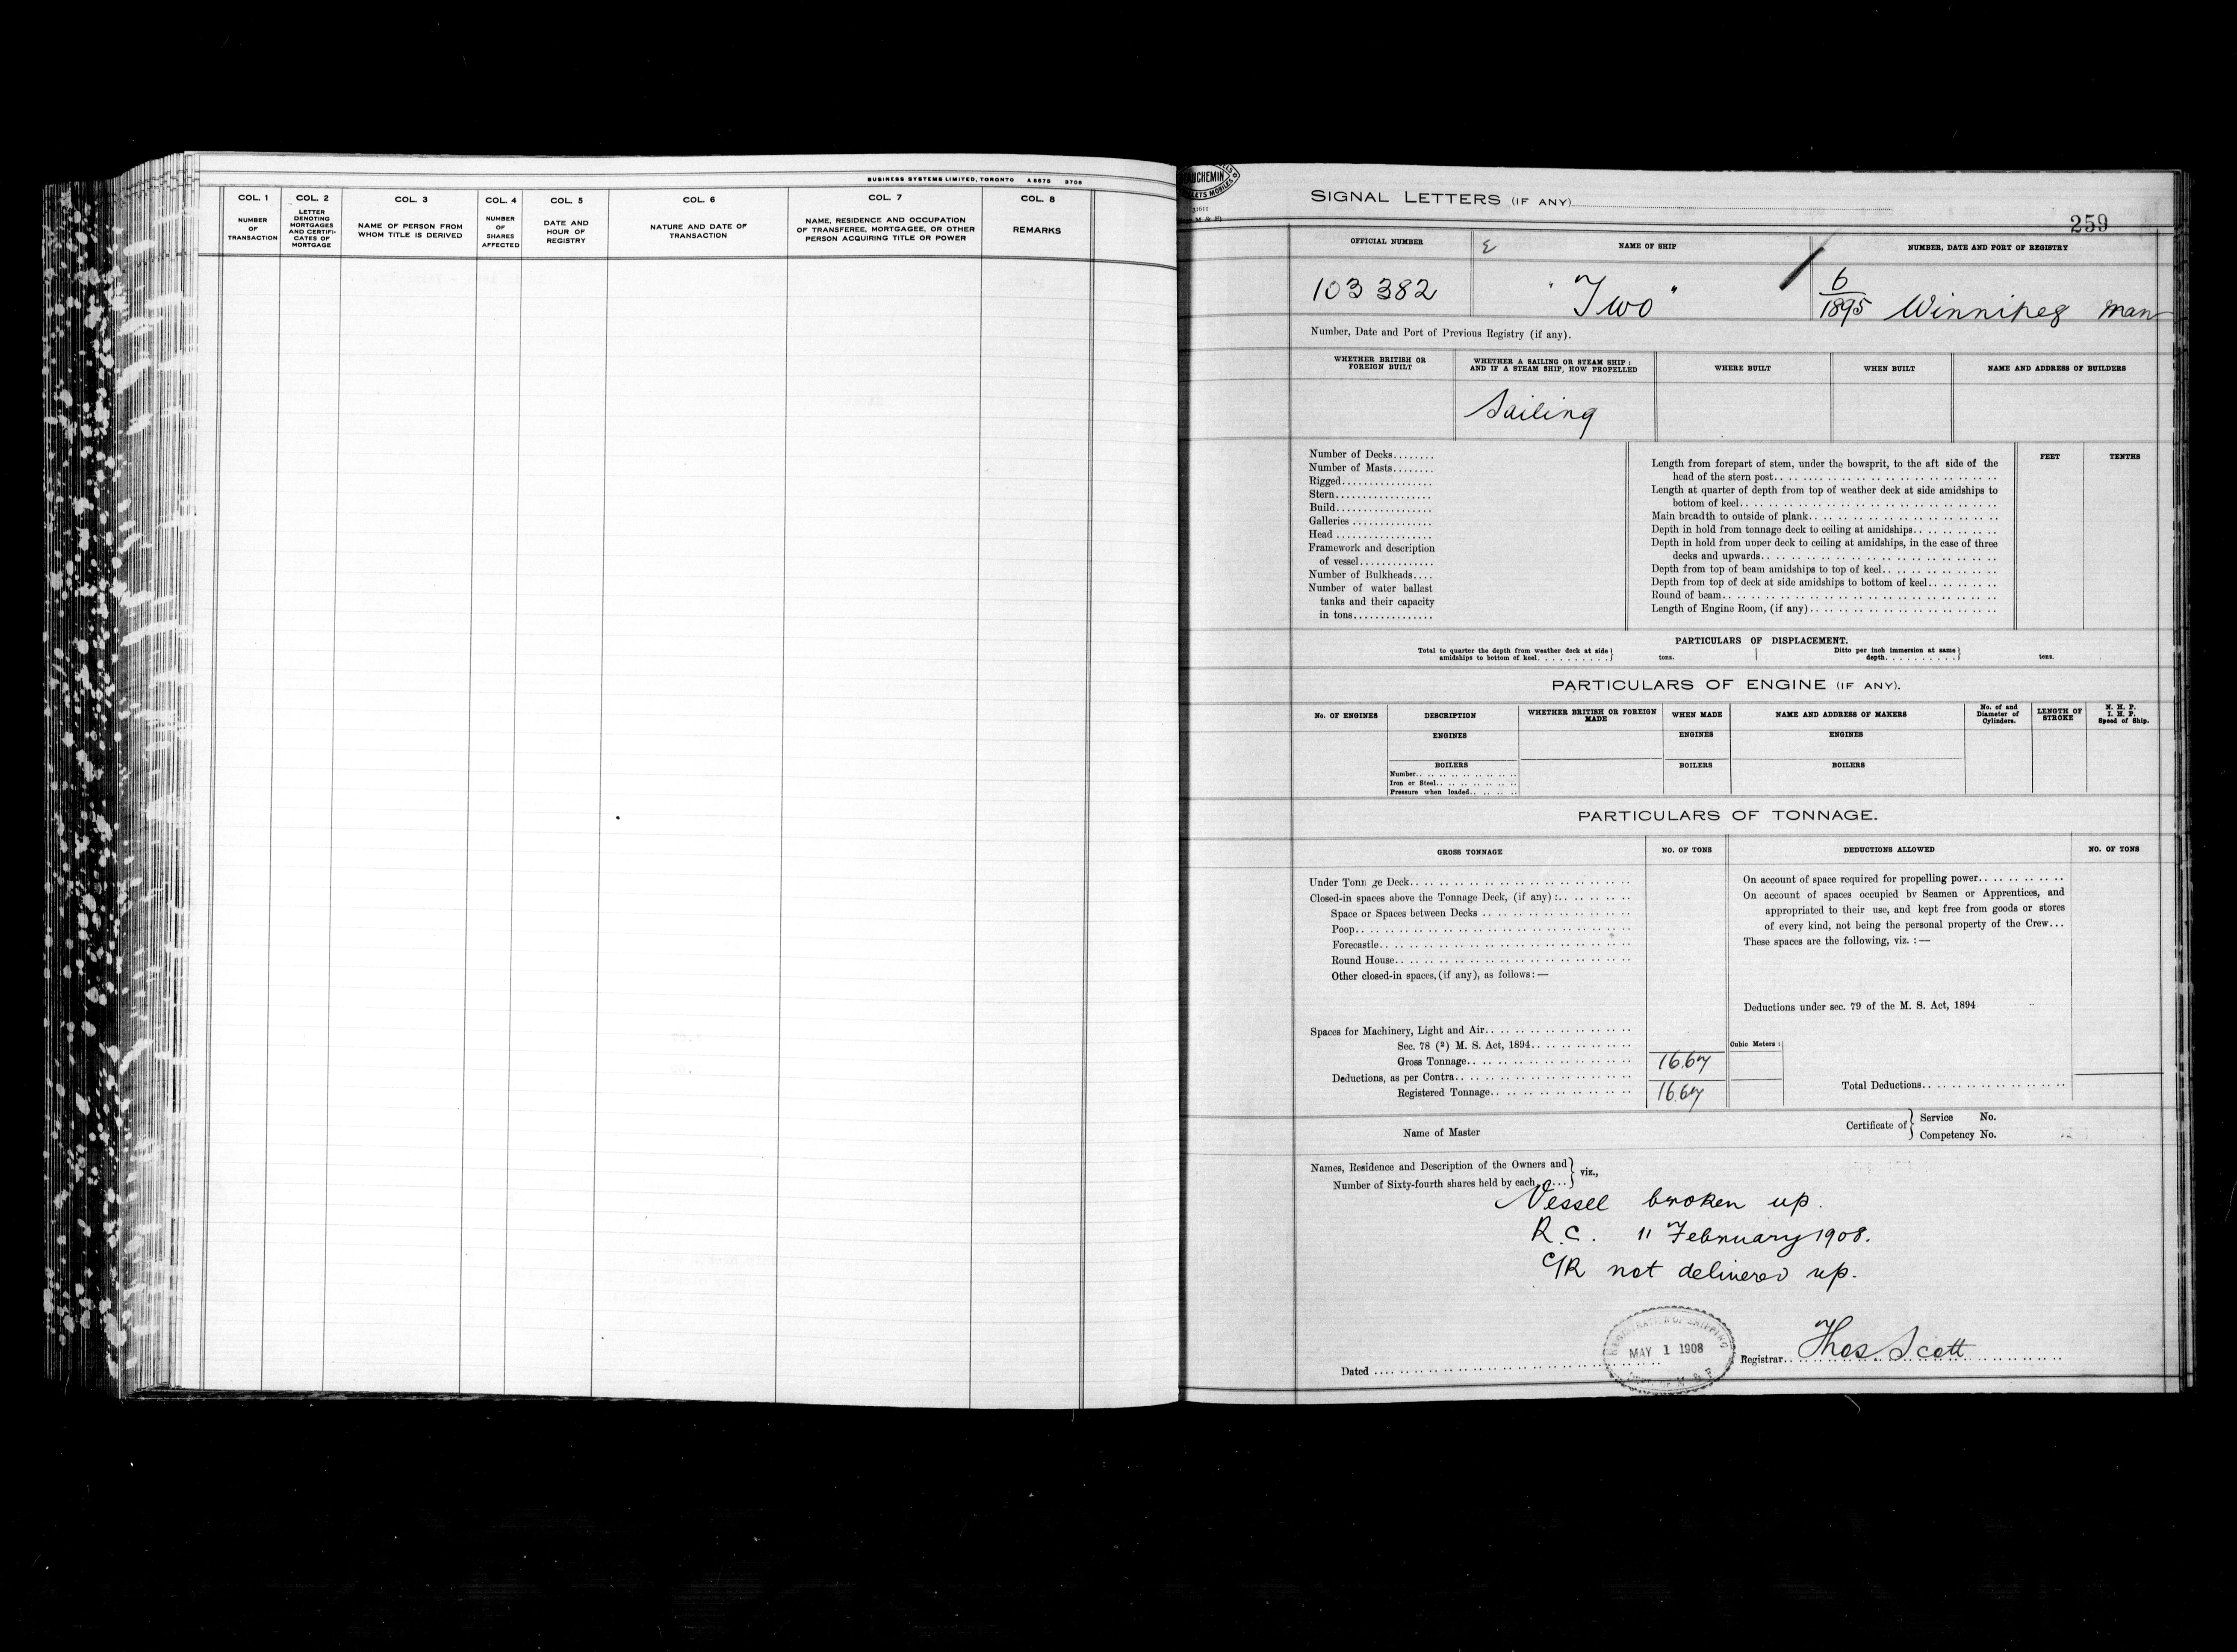 BUSINESS SYSTEMS LIMITED, TORONTO A 6575 3708
COL. 1 COL. 2 COL. 3 COL. 4 COL. 5 COL. 6 COL. 7 COL. 8
NUMBER
OF
TRANSACTION
LETTER
DENOTING
MORTGAGES
AND CERTIFI-
CATES OF
MORTGAGE
NAME OF PERSON FROM
WHOM TITLE IS DERIVED
NUMBER
OF
SHARES
AFFECTED
DATE AND
HOUR OF
REGISTRY
NATURE AND DATE OF
TRANSACTION
NAME, RESIDENCE AND OCCUPATION
OF TRANSFEREE, MORTGAGEE, OR OTHER
PERSON ACQUIRING TITLE OR POWER
REMARKS
SIGNAL LETTERS (IF ANY)
259
OFFICIAL NUMBER
NAME OF SHIP
NUMBER, DATE AND PORT OF REGISTRY
103 382
"Two"
6
1895 Winnipeg Man
Number, Date and Port of Previous Registry (if any).
WHETHER BRITISH OR
FOREIGN BUILT
WHETHER A SAILING OR STEAM SHIP;
AND IF A STEAM SHIP, HOW PROPELLED
WHERE BUILT
WHEN BUILT
NAME AND ADDRESS OF BUILDERS
Sailing
Number of Decks........
Number of Masts........
Rigged.................
Stern..................
Build..................
Galleries ...............
Head ..................
Framework and description
of vessel..............
Number of Bulkheads....
Number of water ballast
tanks and their capacity
in tons...............
FEET TENTHS
Length from forepart of stem, under the bowsprit, to the aft side of the
head of the stern post.. .. .. ..
Length at quarter of depth from top of weather deck at side amidships to
bottom of keel.. .. .. ..
Main breadth to outside of plank.. .. .. ..
Depth in hold from tonnage deck to ceiling at amidships.. .. .. ..
Depth in hold from upper deck to ceiling at amidships, in the case of three
decks and upwards.. .. .. ..
Depth from top of beam amidships to top of keel.. .. .. ..
Depth from top of deck at side amidships to bottom of keel.. .. .. ..
Round of beam.. .. .. ..
Length of Engine Room, (if any).. .. .. ..
PARTICULARS OF DISPLACEMENT.
Total to quarter the depth from weather deck at side
amidships to bottom of keel.......... tons.
Ditto per inch immersion at same
depth.......... tons.
PARTICULARS OF ENGINE (IF ANY).
No. OF ENGINES
DESCRIPTION
WHETHER BRITISH OR FOREIGN
MADE
WHEN MADE
NAME AND ADDRESS OF MAKERS
No. of and
Diameter of
Cylinders.
LENGTH OF
STROKE
N. H. P.
I. H. P.
Speed of Ship.
ENGINES ENGINES ENGINES
BOILERS BOILERS BOILERS
Number.. .. .. ..
Iron or Steel.. .. .. ..
Pressure when loaded.. .. ..
PARTICULARS OF TONNAGE.
GROSS TONNAGE
NO. OF TONS
DEDUCTIONS ALLOWED
NO. OF TONS
Under Tonn ge Deck.. .. .. ..
Closed-in spaces above the Tonnage Deck, (if any):.. .. ..
Space or Spaces between Decks .. .. .. ..
Poop.. .. .. ..
Forecastle.. .. .. ..
Round House.. .. .. ..
Other closed-in spaces, (if any), as follows:—
Spaces for Machinery, Light and Air.. .. .. ..
Sec. 78 (2) M. S. Act, 1894.. .. .. ..
Gross Tonnage.. .. .. .. 16.67
Deductions, as per Contra.. .. .. ..
Registered Tonnage.. .. .. .. 16.67
On account of space required for propelling power.. .. .. ..
On account of spaces occupied by Seamen or Apprentices, and
appropriated to their use, and kept free from goods or stores
of every kind, not being the personal property of the Crew...
These spaces are the following, viz. :—
Deductions under sec. 79 of the M. S. Act, 1894
Cubic Meters:
Total Deductions.. .. .. ..
Name of Master
Certificate of
Service No.
Competency No.
Names, Residence and Description of the Owners and
Number of Sixty-fourth shares held by each.... viz.,
Vessel broken up.
R.C. 11 February 1908.
C/R not delivered up.
REGISTRATION OF SHIPPING
MAY 1 1908
Dated
Registrar Thos. Scott